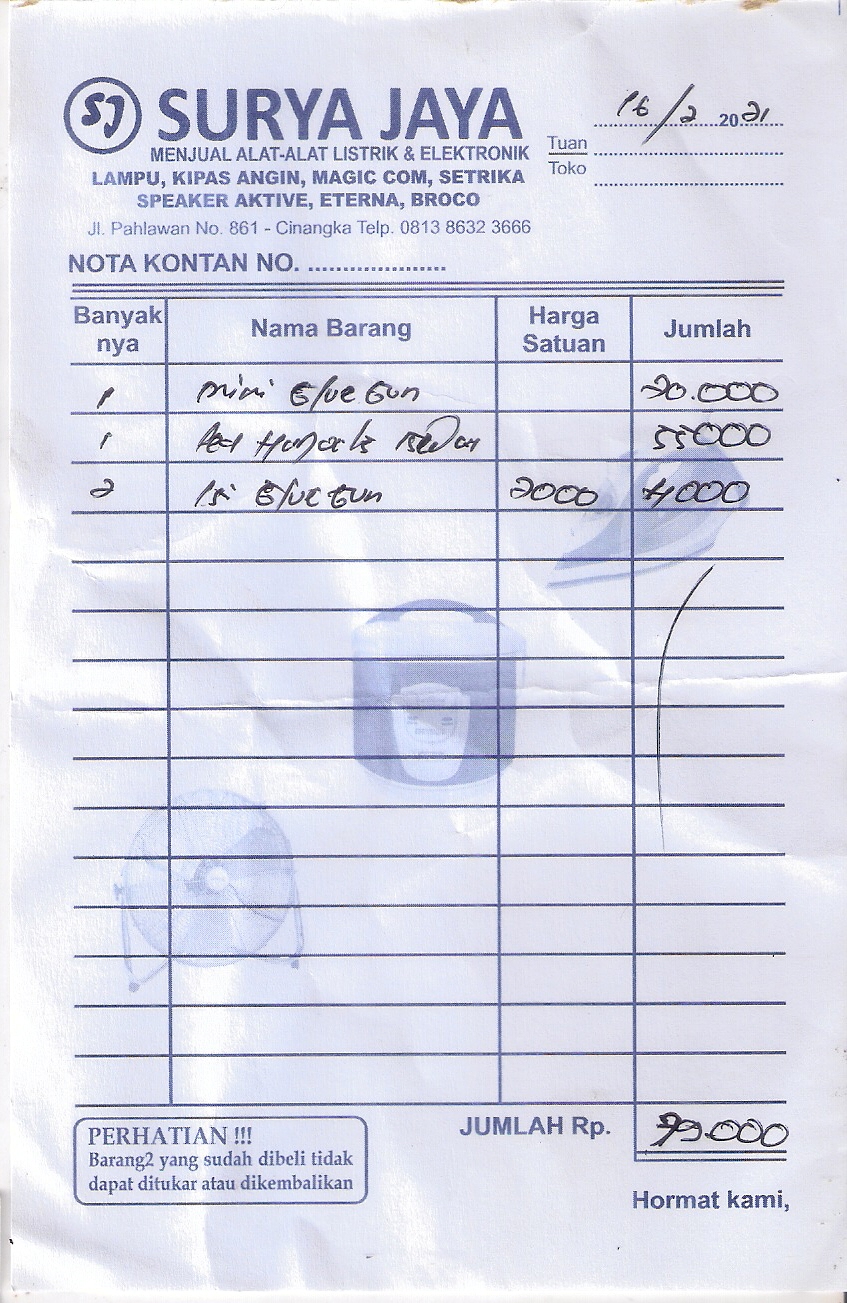 SJ SURYA JAYA
MENJUAL ALAT-ALAT LISTRIK & ELEKTRONIK
LAMPU, KIPAS ANGIN, MAGIC COM, SETRIKA
SPEAKER AKTIVE, ETERNA, BROCO
Jl. Pahlawan No. 861 - Cinangka Telp. 0813 8632 3666
16/2 2021
Tuan
Toko
NOTA KONTAN NO. ....................
Banyak nya Nama Barang Harga Satuan Jumlah
1 Mini Glue Gun 20.000
1 55000
2 Isi Glue Gun 2000 4000
JUMLAH Rp. 79.000
PERHATIAN !!!
Barang2 yang sudah dibeli tidak
dapat ditukar atau dikembalikan
Hormat kami,